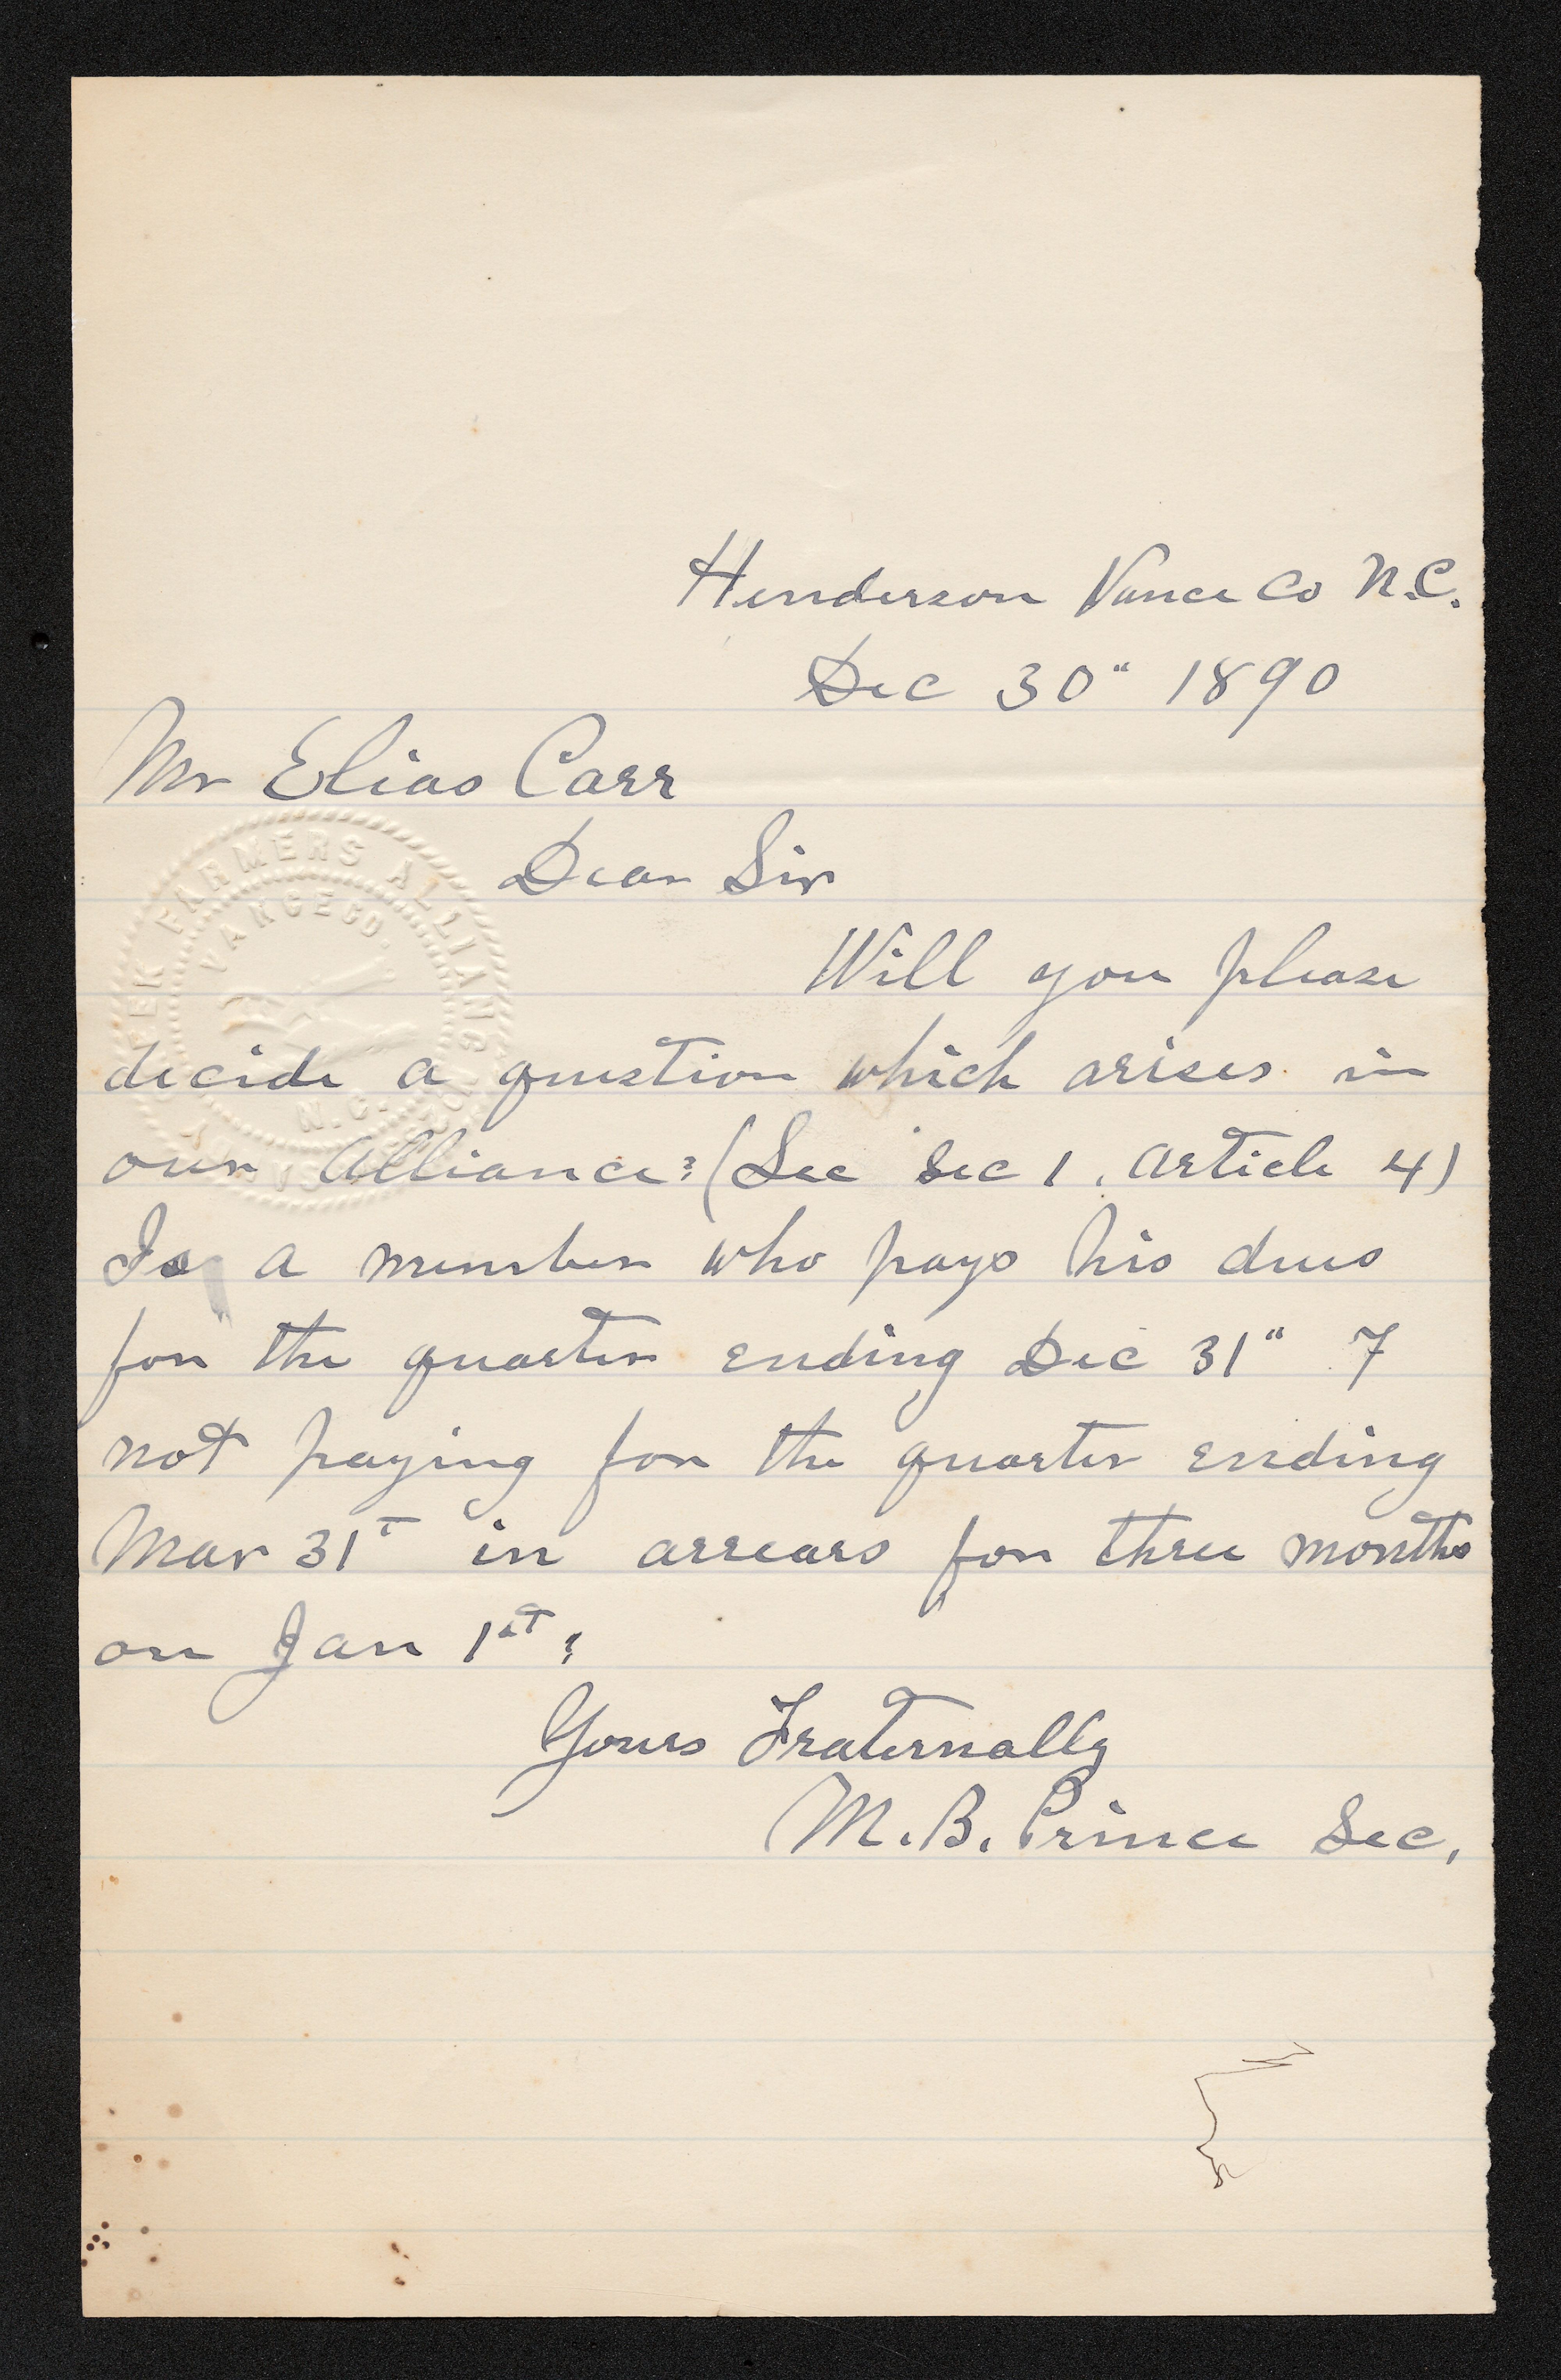 Henderson Vance Co N.C.
Dec 30" 1890
Mr Elias Carr
Dear Sir
FARMERS ALLIANCE
VANCE CO.
N.C.
Will you please
decide a question which arises in
our Alliance? (See Sec 1. Article 4)
Is a member who pays his dues
for the quarter ending Dec 31" &
not paying for the quarter ending
Mar 31st in arrears for three months
on Jan 1st?
Yours Fraternally
M. B. Prince Sec.